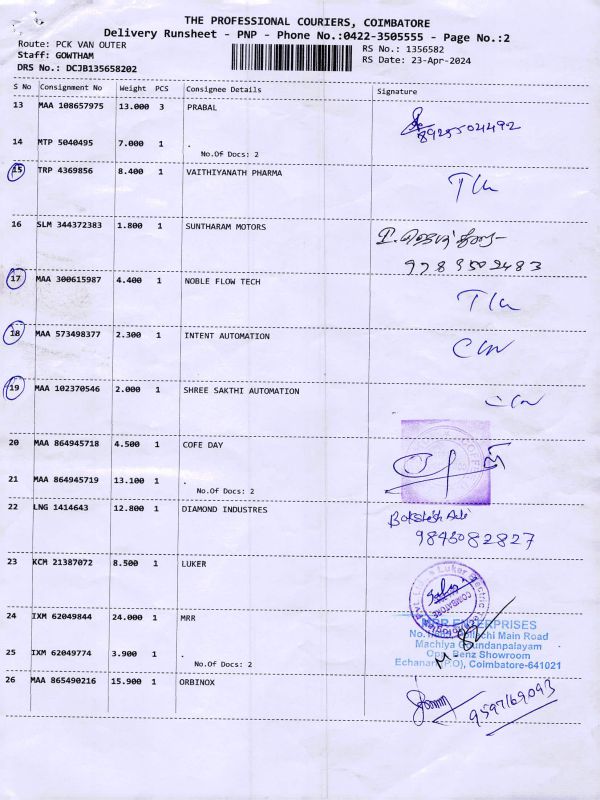 THE PROFESSIONAL COURIERS, COIMBATORE
Delivery Runsheet - PNP - Phone No.:0422-3505555 - Page No.:2
Route: PCK VAN OUTER RS No.: 1356582
Staff: GOWTHAM RS Date: 23-Apr-2024
DRS No.: DCJB135658202
S No Consignment No Weight PCS Consignee Details Signature
13 MAA 108657975 13.000 3 PRABAL
14 MTP 5040495 7.000 1 .
No.Of Docs: 2
15 TRP 4369856 8.400 1 VAITHIYANATH PHARMA
16 SLM 344372383 1.800 1 SUNTHARAM MOTORS
9789502483
17 MAA 300615987 4.400 1 NOBLE FLOW TECH
18 MAA 573498377 2.300 1 INTENT AUTOMATION
19 MAA 102370546 2.000 1 SHREE SAKTHI AUTOMATION
20 MAA 864945718 4.500 1 COFE DAY
21 MAA 864945719 13.100 1 .
No.Of Docs: 2
22 LNG 1414643 12.800 1 DIAMOND INDUSTRES
9843082827
23 KCM 21387072 8.500 1 LUKER
Luker Electric
COIMBATORE
24 IXM 62049844 24.000 1 MRR
MRR ENTERPRISES
Main Road
Machiya
25 IXM 62049774 3.900 1 .
Opp. Benz Showroom
No.Of Docs: 2
Coimbatore-641021
26 MAA 865490216 15.900 1 ORBINOX
9597169093